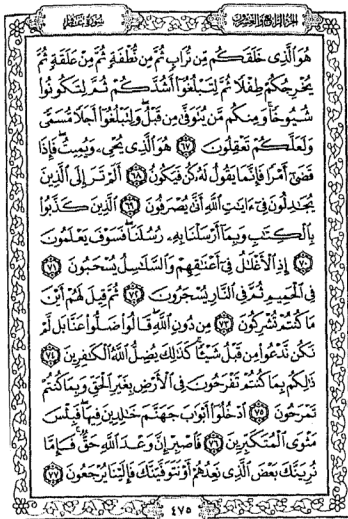 الجزء الرابع والعشرون
سورة غافر
هُوَ الَّذِى خَلَقَكُم مِّن تُرَابٍ ثُمَّ مِن نُّطْفَةٍ ثُمَّ مِنْ عَلَقَةٍ ثُمَّ
يُخْرِجُكُمْ طِفْلًا ثُمَّ لِتَبْلُغُوٓا۟ أَشُدَّكُمْ ثُمَّ لِتَكُونُوا۟
شُيُوخًا ۚ وَمِنكُم مَّن يُتَوَفَّىٰ مِن قَبْلُ ۖ وَلِتَبْلُغُوٓا۟ أَجَلًا مُّسَمًّى
وَلَعَلَّكُمْ تَعْقِلُونَ ٦٧ هُوَ الَّذِى يُحْىِۦ وَيُمِيتُ ۖ فَإِذَا
قَضَىٰٓ أَمْرًا فَإِنَّمَا يَقُولُ لَهُۥ كُن فَيَكُونُ ٦٨ أَلَمْ تَرَ إِلَى الَّذِينَ
يُجَٰدِلُونَ فِىٓ ءَايَٰتِ اللَّهِ أَنَّىٰ يُصْرَفُونَ ٦٩ الَّذِينَ كَذَّبُوا۟
بِالْكِتَٰبِ وَبِمَآ أَرْسَلْنَا بِهِۦ رُسُلَنَا ۖ فَسَوْفَ يَعْلَمُونَ
٧٠ إِذِ الْأَغْلَٰلُ فِىٓ أَعْنَٰقِهِمْ وَالسَّلَٰسِلُ يُسْحَبُونَ ٧١
فِى الْحَمِيمِ ثُمَّ فِى النَّارِ يُسْجَرُونَ ٧٢ ثُمَّ قِيلَ لَهُمْ أَيْنَ
مَا كُنتُمْ تُشْرِكُونَ ٧٣ مِن دُونِ اللَّهِ ۖ قَالُوا۟ ضَلُّوا۟ عَنَّا بَل لَّمْ
نَكُن نَّدْعُوا۟ مِن قَبْلُ شَيْـًٔا ۚ كَذَٰلِكَ يُضِلُّ اللَّهُ الْكَٰفِرِينَ ٧٤
ذَٰلِكُم بِمَا كُنتُمْ تَفْرَحُونَ فِى الْأَرْضِ بِغَيْرِ الْحَقِّ وَبِمَا كُنتُمْ
تَمْرَحُونَ ٧٥ ادْخُلُوٓا۟ أَبْوَٰبَ جَهَنَّمَ خَٰلِدِينَ فِيهَا ۖ فَبِئْسَ
مَثْوَى الْمُتَكَبِّرِينَ ٧٦ فَاصْبِرْ إِنَّ وَعْدَ اللَّهِ حَقٌّ ۚ فَإِمَّا
نُرِيَنَّكَ بَعْضَ الَّذِى نَعِدُهُمْ أَوْ نَتَوَفَّيَنَّكَ فَإِلَيْنَا يُرْجَعُونَ ٧٧
٤٧٥